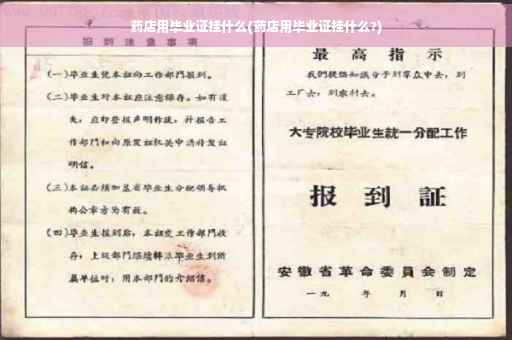 药店用毕业证挂什么(药店用毕业证挂什么?)
报到注意事项
(一)毕业生凭本证向工作部门报到。
(二)毕业生对本证应注意保存。如有遗
失，应即登报声明作废，并报告工
作部门和向原发证机关申请补发证
明信。
(三)本证必须加盖省毕业生分配领导机
构公章方为有效。
(四)毕业生报到后，本证交工作部门收
存，上级部门继续转派毕业生到所
属单位时，用本部门的介绍信。
最高指示
我们提倡知识分子到羣众中去，到
工厂去，到农村去。
大专院校毕业生統一分配工作
报到証
安徽省革命委員会制定
一九 年 月 日